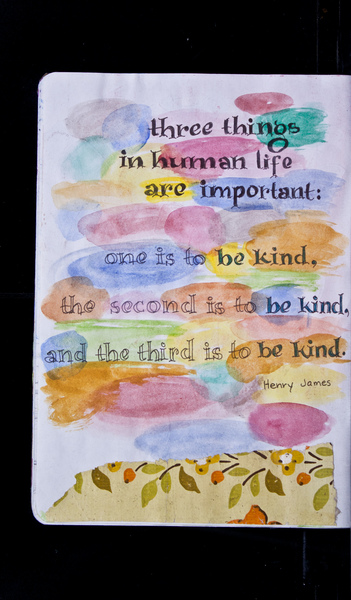 three things
in human life
are important:
one is to be kind,
the second is to be kind,
and the third is to be kind.
Henry James